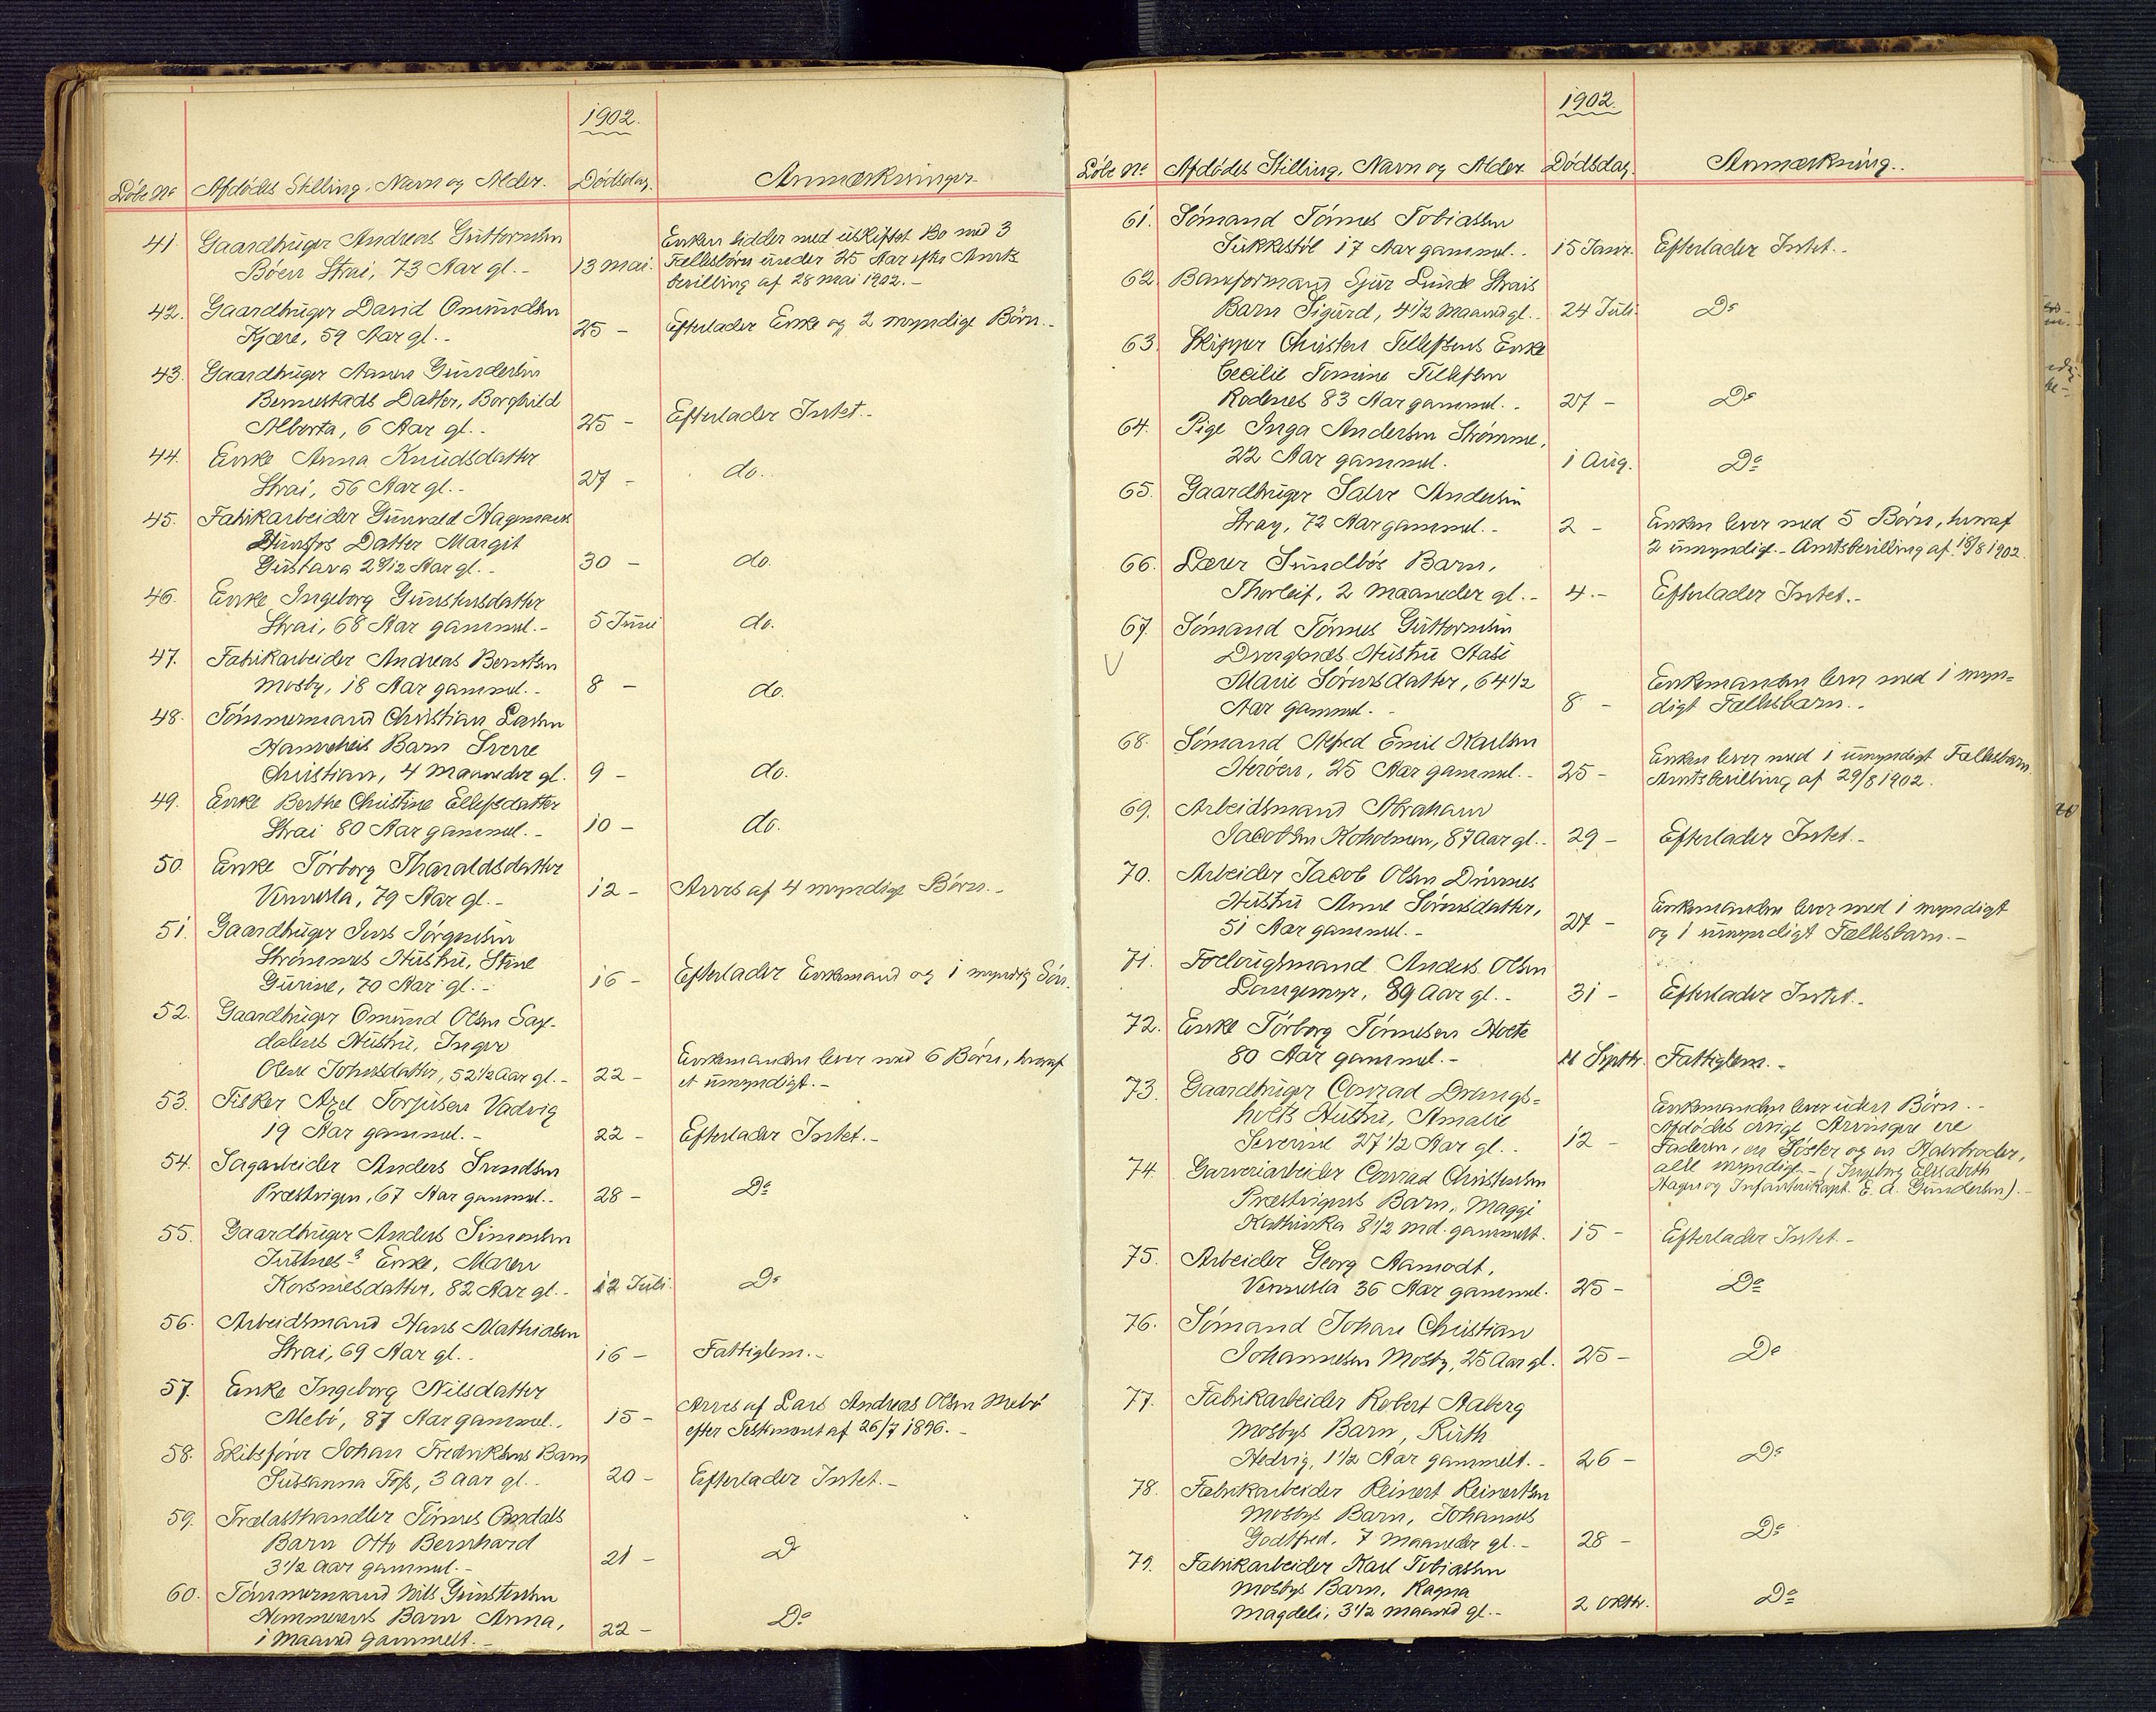 1902.
Löbe No Afdödes Stilling, Navn og Alder. Dödsdag. Anmærkninger
41. Gaardbruger Andreas Guttormsen
Böen Strai, 73 Aar gl. - 13 Mai.
Enken sidder med uskiftet Bo med 3
Fællesbörn under 25 Aar efter Amts
bevilling af 28 Mai 1902. -
42. Gaardbruger David Omundsen
Kjære, 59 Aar gl. - 25 - Efterlader Enke og 2 myndige Börn. -
43. Gaardbruger Aanen Gundersen
Bennestads Datter, Borghild
Alberta, 6 Aar gl. - 25 - Efterlader Intet. -
44. Enke Anna Knudsdatter
Strai, 56 Aar gl. - 27 - do.
45. Fabrikarbeider Gunvald Hagemans
Hunsfos Datter Margit
Gustava 2 9/12 Aar gl. - 30 - do.
46. Enke Ingeborg Gunstensdatter
Strai, 68 Aar gammel. - 5 Juni do.
47. Fabrikarbeider Andreas Berntsen
Mosby, 18 Aar gammel. - 8 - do.
48. Tömmermand Christian Larsen
Hamreheis Barn Sverre
Christian, 4 Maaneder gl. 9 - do.
49. Enke Berthe Christine Ellefsdatter
Strai 80 Aar gammel. - 10 - do.
50. Enke Törborg Tharaldsdatter
Vennesla, 79 Aar gl. - 12 - Arves af 4 myndige Börn. -
51. Gaardbruger Jens Jörgensen
Strömmes Hustru, Stine
Gurine, 70 Aar gl. - 16 - Efterlader Enkemand og 1 myndig Sön.
52. Gaardbruger Omund Olsen Sag-
dalens Hustru, Inger
Olene Johnsdatter, 52 1/2 Aar gl. - 22 -
Enkemanden lever med 6 Börn, hvoraf
et umyndigt. -
53. Fisker Axel Torjusen Vadvig
19 Aar gammel. - 22 - Efterlader Intet. -
54. Sagarbeider Anders Svendsen
Præstvigen, 67 Aar gammel. - 28 - Do
55. Gaardbruger Anders Simonsen
Justnes? Enke, Maren
Korsnilsdatter, 82 Aar gl. - 12 Juli. Do
56. Arbeidsmand Hans Mathiasen
Strai, 69 Aar gl. . 16 - Fattiglem. -
57. Enke Ingeborg Nilsdatter
Mebö, 87 Aar gammel. . 15 -
Arves af Lars Andreas Olsen Mebö
efter Testament af 26/7 1896. -
58. Skibsförer Johan Fredriksens Barn
Sussanna Tofs, 3 Aar gl. - 20 - Efterlader Intet. -
59. Trælasthandler Tönnes Omdals
Barn Otto Bernhard
3 1/2 Aar gammel. - 21 - D
60. Tömmermand Nils Gunstensen
Hemmerens Barn Anna,
1 Maaned gammelt. - 22 - Do
1902.
Löbe No Afdödes Stilling, Navn og Alder. Dödsdag. Anmærkning..
61. Sömand Tönnes Tobiassen
Sukkestöl 17 Aar gammel. . 15 Janr. Efterlader Intet. -
62. Baneformand Sjur Lunde Strais
Barn Sigurd, 4 1/2 Maaned gl. . 24 Juli. Do
63. Skipper Christen Tellefsens Enke
Cecilie Tomine Tellefsen
Rodenes 83 Aar gammel. . 27 - Do
64. Pige Inga Andersen Strömme,
22 Aar gammel. 1 Aug. Do
65. Gaardbruger Salve Andersen
Stray, 72 Aar gammel. - 2 - Enken lever med 5 Börn, hvoraf
2 umyndige. - Amtsbevilling af 18/8 1902.
66. Lærer Sundbös Barn,
Thorleif, 2 Maaneder gl. - 4. - Efterlader Intet. -
67. Sömand Tönnes Guttormsen
V Dvergsnæs Hustru Aase
Marie Sörensdatter, 64 1/2
Aar gammel. - 8 -
Enkemanden lever med 1 myn=
digt Fællesbarn. .
68. Sömand Alfred Emil Karlsen
Heröen, 25 Aar gammel. - 25 -
Enken lever med 1 umyndigt Fællesbarn.
Amtsbevilling af 29/8 1902.
69. Arbeidsmand Abraham
Jacobsen Koholmen, 87 Aar gl. . 29 - Efterlader Intet. -
70. Arbeider Jacob Olsen Dunnes
Hustru Anne Sörensdatter,
51 Aar gammel. - 27 -
Enkemanden lever med 1 myndigt
og 1 umyndigt Fællesbarn. -
71. Forlougsmand Anders Olsen
Langemyr, 89 Aar gl. . 31 - Efterlader Intet. -
72. Enke Törborg Tönnesen Holte
80 Aar gammel. - 11 Septbr. Fattiglem. -
73. Gaardbruger Conrad Drangs=
holts Hustru, Amalie
Severine 27 1/2 Aar gl. . 12 -
Enkemanden lever uden Börn. -
Afdödes övrige Arvinger ere
Faderen, en Söster og en Halvbroder,
alle myndige. - (Ingeborg Elisabeth
Hagen og Infanterikapt. E. A. Gundersen). -
74. Garveriarbeider Conrad Christensen
Præstvigens Barn, Maggi
Kathinka 8 1/2 md. gammelt. 15 - Efterlader Intet. -
75. Arbeider Georg Aamodt,
Vennesla 36 Aar gammel. 25 - Do
76. Sömand Johan Christian
Johannesen Mosby, 25 Aar gl. 25 - Do
77. Fabrikarbeider Robert Aaberg
Mosbys Barn, Ruth
Hedvig, 1 1/2 Aar gammelt. - 26 - Do
78. Fabrikarbeider Reinert Reinertsen
Mosbys Barn, Johannes
Godtfred, 7 Maaneder gl. - 28 - Do
79. Fabrikarbeider Karl Tobiassen
Mosbys Barn, Ragna
Magdeli, 3 1/2 Maaned gl. - 2 Oktbr. Do